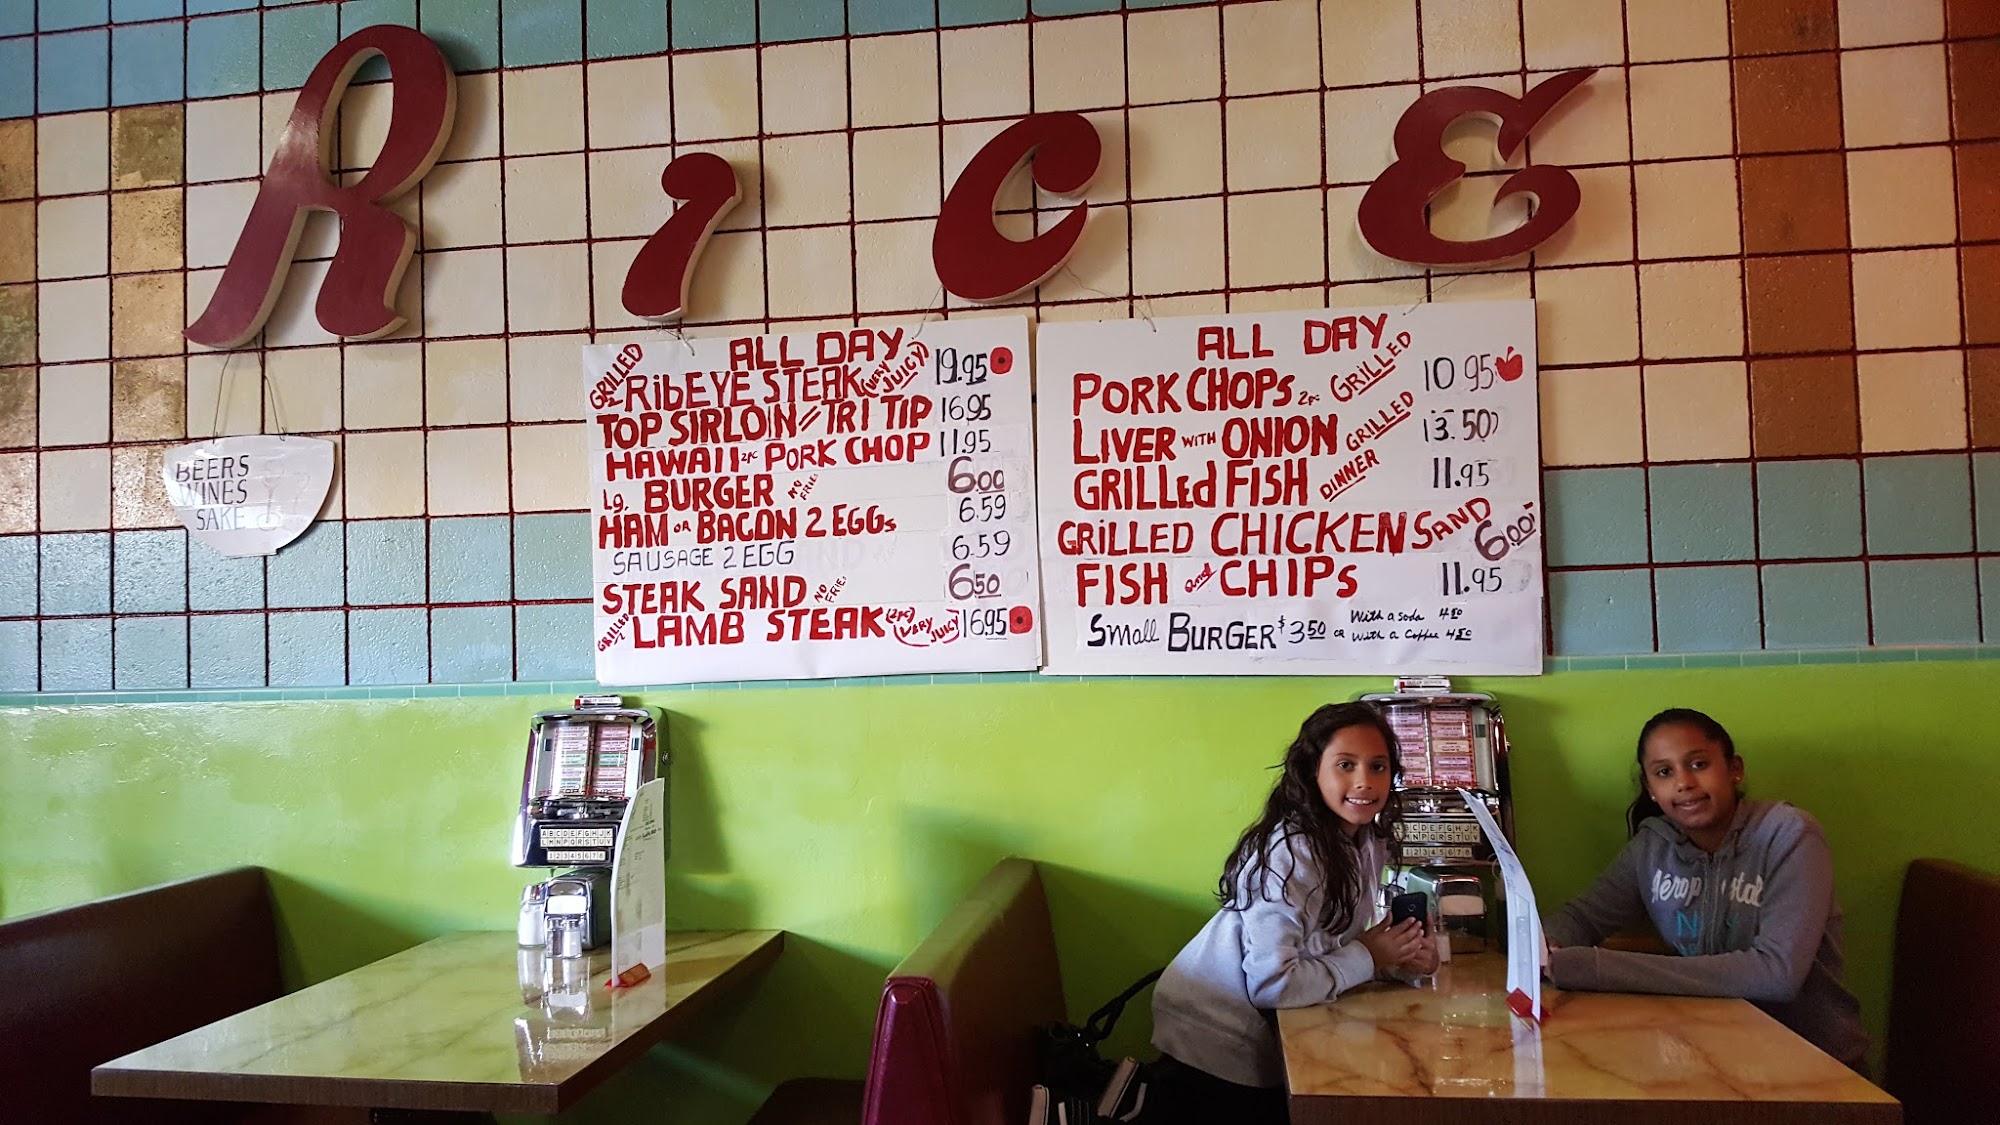 RICE
BEERS
WINES
SAKE
ALL DAY
GRILLED RIBEYE STEAK (VERY JUICY) 19.95
TOP SIRLOIN // TRI TIP 16.95
HAWAII 2pc PORK CHOP 11.95
Lg. BURGER NO FRIE. 6.00
HAM OR BACON 2 EGGs 6.59
SAUSAGE 2 EGG 6.59
STEAK SAND NO FRIE. 6.50
GRILLED LAMB STEAK (2pc) (VERY JUICY) 16.95
ALL DAY
PORK CHOPS 2pc GRILLED 10.95
LIVER WITH ONION GRILLED 13.50
GRILLEd FISH DINNER 11.95
GRILLED CHICKEN SAND 6.00
FISH and CHIPs 11.95
Small BURGER $3.50 OR With a soda 4.50
With a Coffee 4.50
A B C D E F G H J K
L M N P Q R S T U V
1 2 3 4 5 6 7 8
A B C D E F G H J K
L M N P Q R S T U V
1 2 3 4 5 6 7 8
Aéropostale
N Y